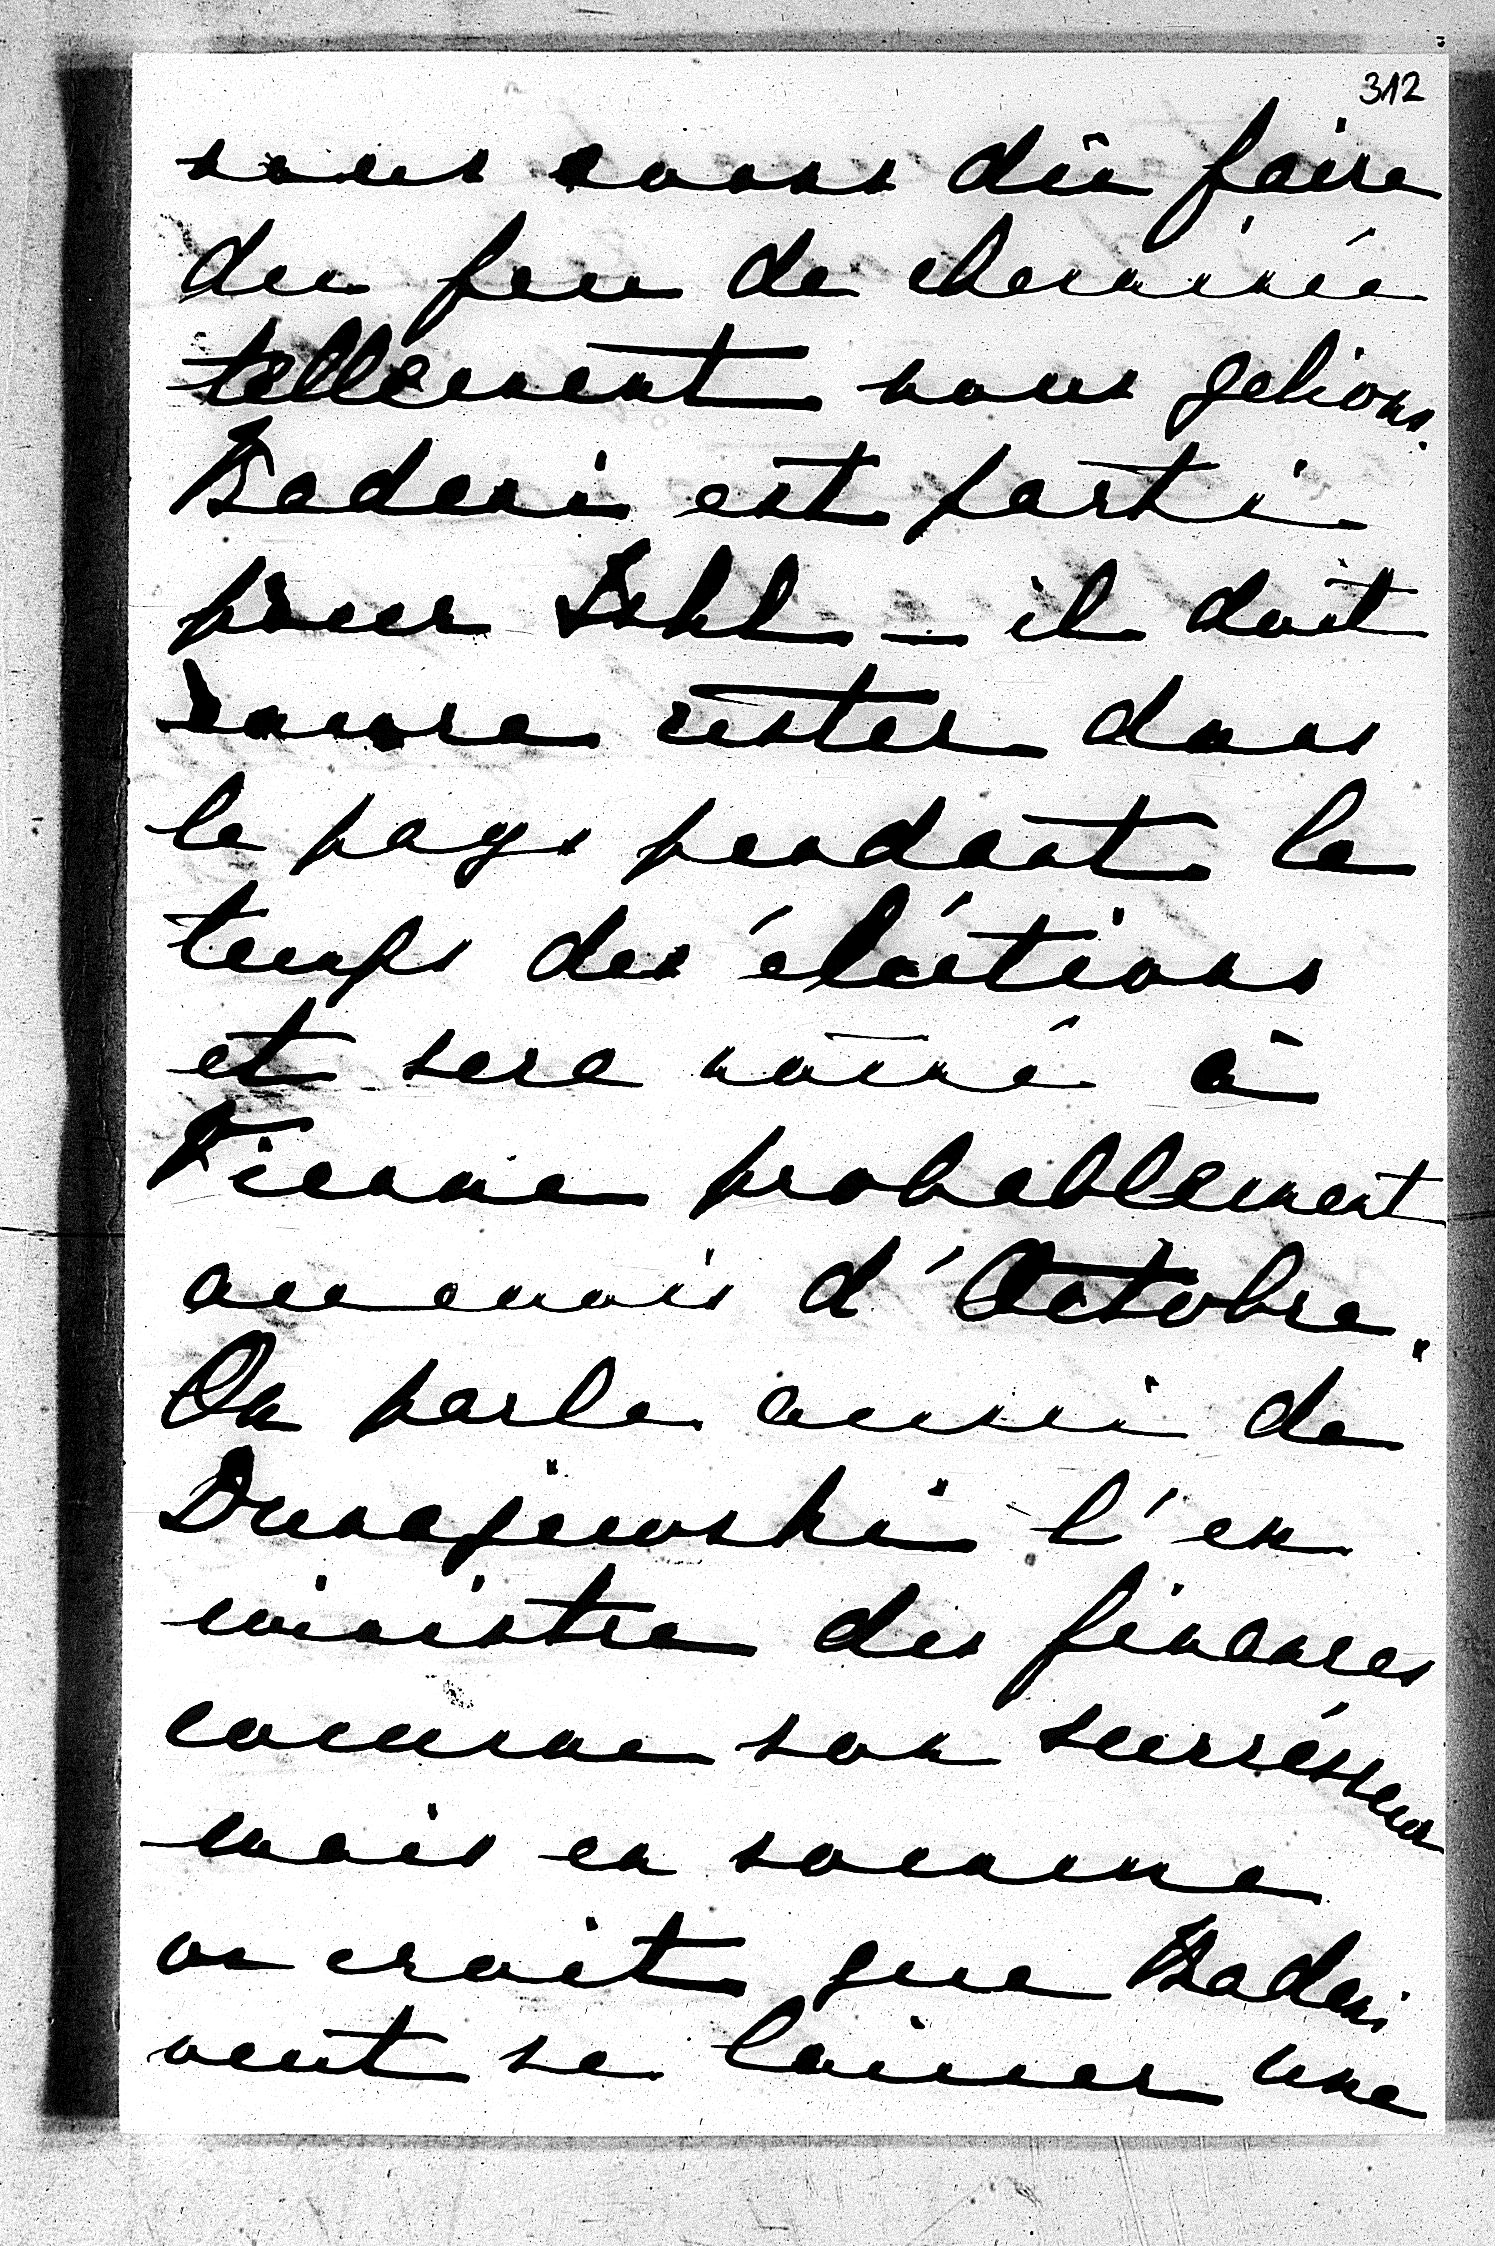 312
nous avons dû faire
du feu de cheminée
tellement nous gelions.
Badeni est parti
pour Ischl – il doit
encore rester dans
le pays pendant le
temps des éléctions
et sera nom̄é à
Vienne probablement
au mois d'Octobre.
On parle aussi de
Dunajewski l'ex
ministre des finances
comme son successeur
mais en somme
on croit que Badeni
veut se laisser une